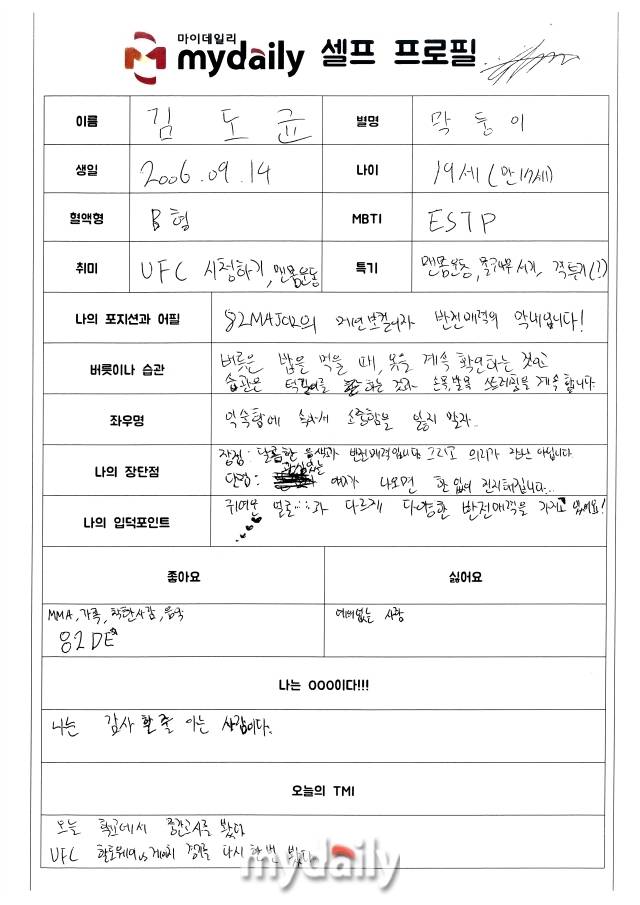 마이데일리
mydaily 셀프 프로필
이름 김도균 별명 막둥이
생일 2006.09.14 나이 19세(만17세)
혈액형 B형 MBTI ESTP
취미 UFC 시청하기, 맨몸운동 특기 맨몸운동, 물구나무 서기, 격투기(?)
나의 포지션과 어필 82MAJOR의 메인보컬이자 반전매력의 막내입니다!
버릇이나 습관 버릇은 밥을 먹을 때, 옷을 계속 확인하는 것이고
습관은 턱걸이를 하는 것과 손목,발목 스트레칭을 계속 합니다
좌우명 익숙함에 속아서 소중함을 잃지 말자..
나의 장단점 장점: 달콤한 음색과 반전매력입니다 그리고 의리가 장난 아닙니다
단점: 관심있는 얘기가 나오면 한 없이 진지해집니다...
나의 입덕포인트 귀여운 얼굴..과 다르게 다양한 반전매력을 가지고 있어요!
좋아요 싫어요
MMA, 가족, 착한사람, 음악 예의없는 사람
82DE
나는 OOO이다!!!
나는 감사 할 줄 아는 사람이다.
오늘의 TMI
오늘 학교에서 중간고사를 봤다
UFC 할로웨이vs게이치 경기를 다시 한번 봤다
mydaily